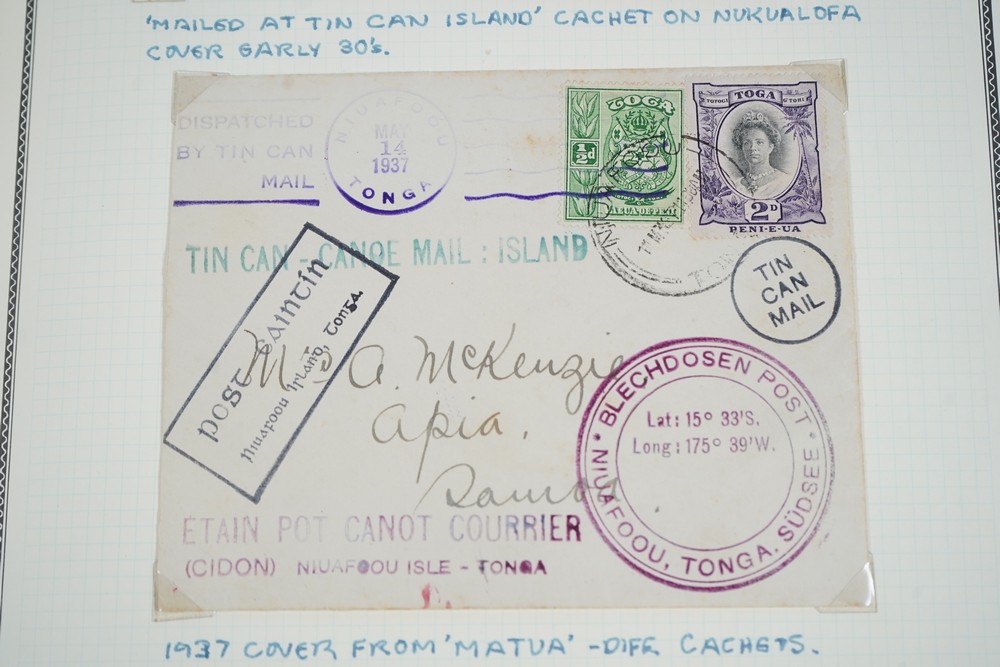 'MAILED AT TIN CAN ISLAND' CACHET ON NUKUALOFA
COVER EARLY 30's.
DISPATCHED
BY TIN CAN
MAIL
NIUAFOOU
MAY
14
1937
TONGA
TOGA
½d
TOGA
TOTOGI
2D
PENI-E-UA
TIN CAN - CANOE MAIL : ISLAND
TIN
CAN
MAIL
post
Niuafoou Island, Tonga.
A. McKenzie
Apia,
Samoa
BLECHDOSEN POST
Lat: 15° 33'S.
Long: 175° 39'W.
NIUAFOOU, TONGA. SÜDSEE
ETAIN POT CANOT COURRIER
(CIDON) NIUAFOOU ISLE - TONGA
1937 COVER FROM 'MATUA' - DIFF CACHETS.